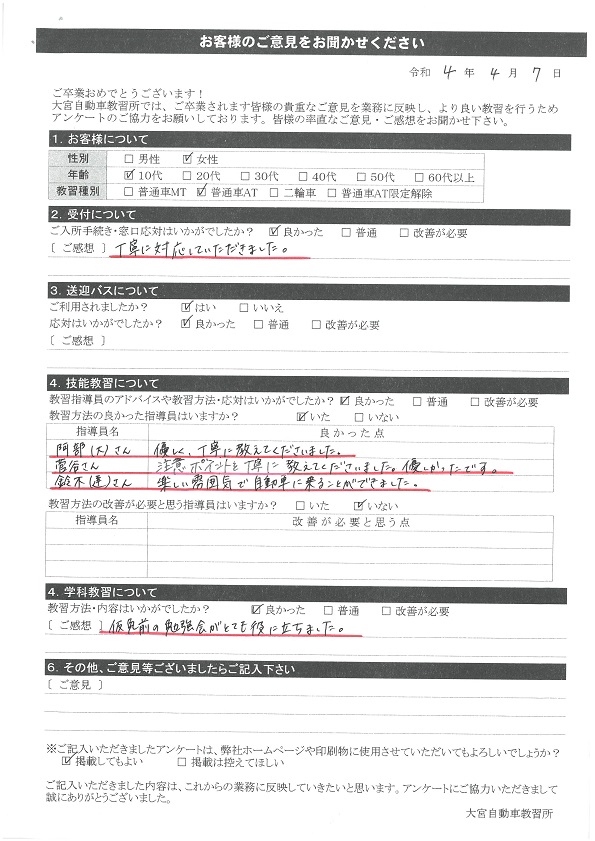 お客様のご意見をお聞かせください
令和 4 年 4 月 7 日
ご卒業おめでとうございます！
大宮自動車教習所では、ご卒業されます皆様の貴重なご意見を業務に反映し、より良い教習を行うため
アンケートのご協力をお願いしております。皆様の率直なご意見・ご感想をお聞かせ下さい。
1．お客様について
性別 □ 男性 ☑ 女性
年齢 ☑ 10代 □ 20代 □ 30代 □ 40代 □ 50代 □ 60代以上
教習種別 □ 普通車MT ☑ 普通車AT □ 二輪車 □ 普通車AT限定解除
2．受付について
ご入所手続き・窓口応対はいかがでしたか？ ☑ 良かった □ 普通 □ 改善が必要
［ ご感想 ］ 丁寧に対応していただきました。
3．送迎バスについて
ご利用されましたか？ ☑ はい □ いいえ
応対はいかがでしたか？ ☑ 良かった □ 普通 □ 改善が必要
［ ご感想 ］
4．技能教習について
教習指導員のアドバイスや教習方法・応対はいかがでしたか？ ☑ 良かった □ 普通 □ 改善が必要
教習方法の良かった指導員はいますか？ ☑ いた □ いない
指導員名 良かった点
阿部(大)さん 優しく、丁寧に教えてくださいました。
菅谷さん 注意ポイントを丁寧に教えてくださいました。優しかったです。
鈴木(達)さん 楽しい雰囲気で自動車に乗ることができました。
教習方法の改善が必要と思う指導員はいますか？ □ いた ☑ いない
指導員名 改善が必要と思う点
4．学科教習について
教習方法・内容はいかがでしたか？ ☑ 良かった □ 普通 □ 改善が必要
［ ご感想 ］ 仮免前の勉強会がとても役に立ちました。
6．その他、ご意見等ございましたらご記入下さい
［ ご意見 ］
※ご記入いただきましたアンケートは、弊社ホームページや印刷物に使用させていただいてもよろしいでしょうか？
☑ 掲載してもよい □ 掲載は控えてほしい
ご記入いただきました内容は、これからの業務に反映していきたいと思います。アンケートにご協力いただきまして
誠にありがとうございました。
大宮自動車教習所